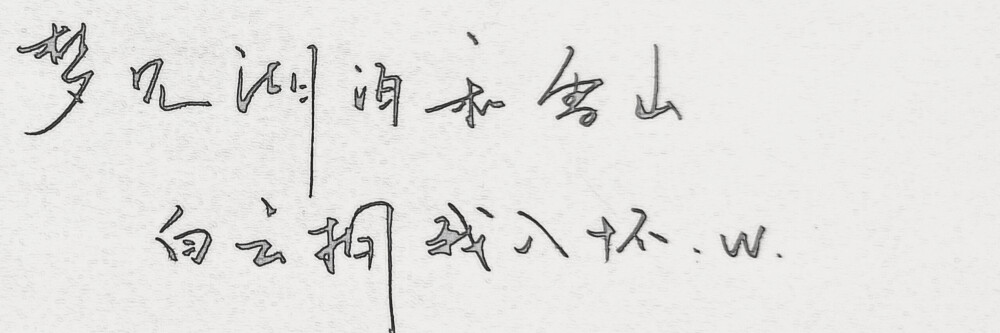 梦见湖泊和雪山
白云拥我入怀.W.